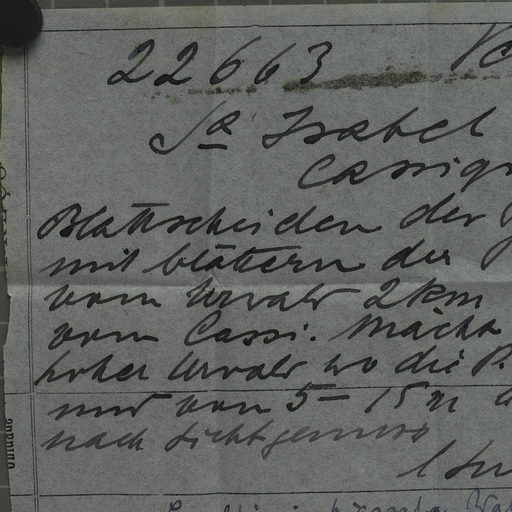 22663
Sa Isabel
Cassiqu
Blattscheiden der
mit blättern der
vom Urwald 2km
vom Cassi. Mácha
hoher Urwald wo die P.
nur von 5-15 m
nach Lichtgenuss